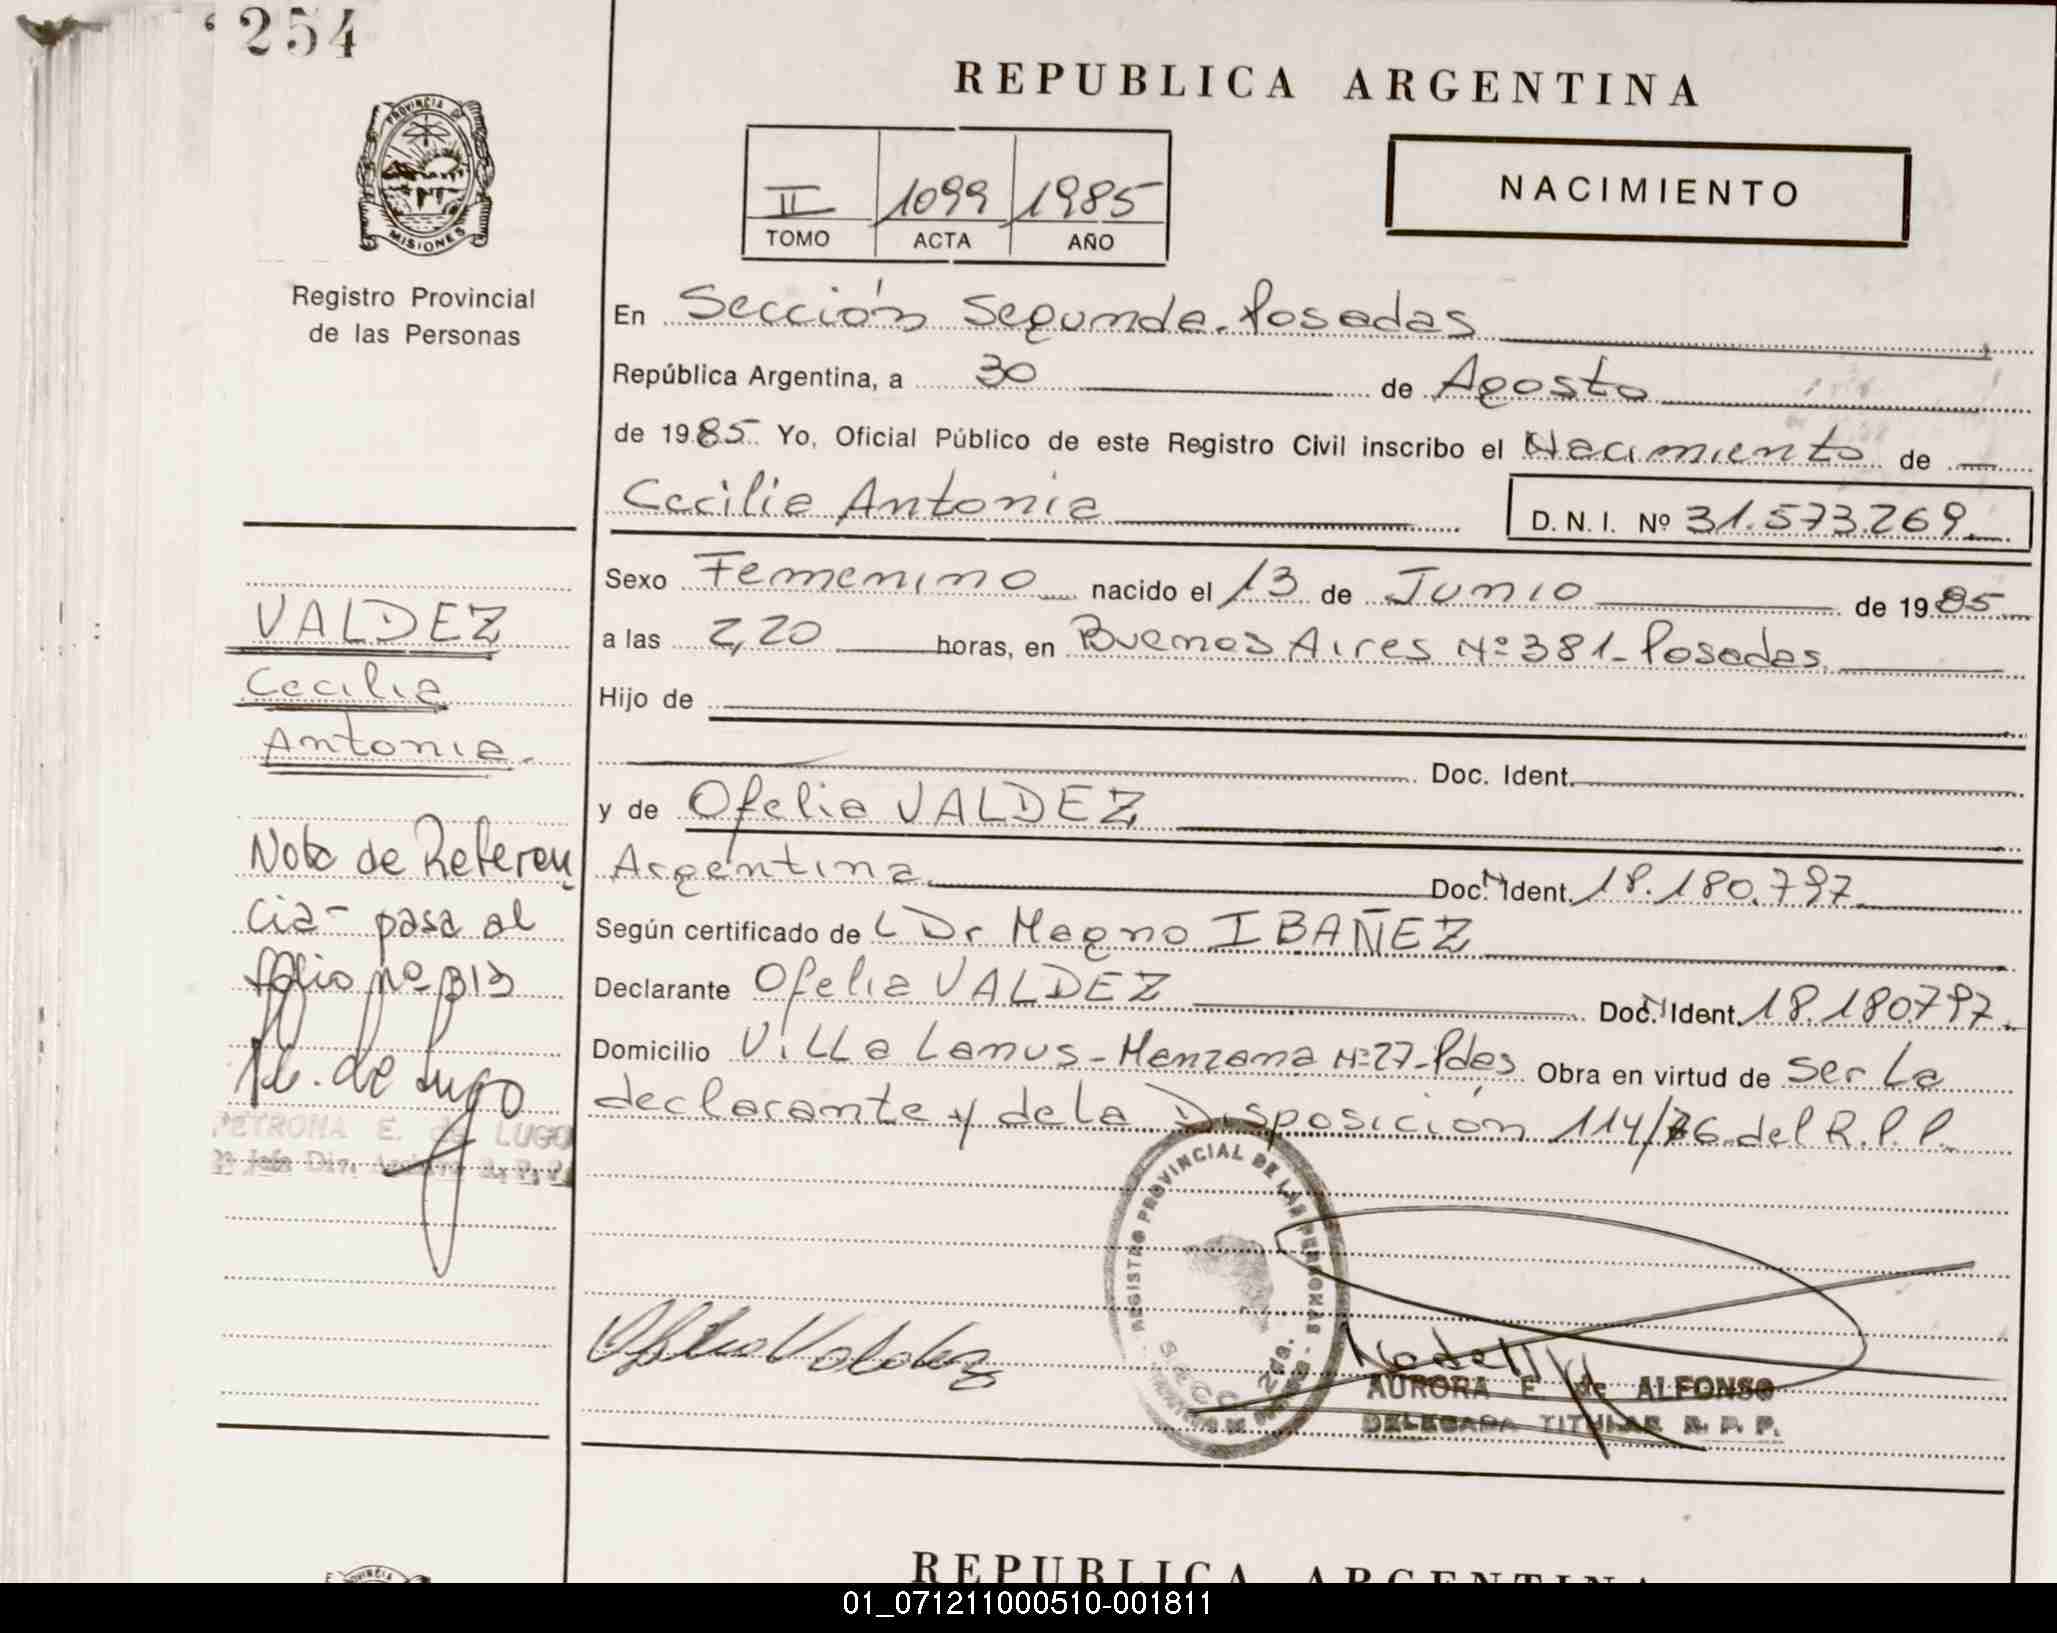 254
PROVINCIA DE
MISIONES
Registro Provincial
de las Personas
REPUBLICA ARGENTINA
II 1099 1985
TOMO ACTA AÑO
NACIMIENTO
En Sección Segunda. Posadas
República Argentina, a 30 de Agosto
de 1985. Yo, Oficial Público de este Registro Civil inscribo el Nacimiento de
Cecilia Antonia D. N. I. Nº 31.573.269
Sexo Femenino nacido el 13 de Junio de 1985
a las 2,20 horas, en Buenos Aires Nº 381-Posadas
Hijo de
Doc. Ident.
y de Ofelia VALDEZ
Argentina Doc. N Ident. 18.180.797
Según certificado de L Dr Magno IBAÑEZ
Declarante Ofelia VALDEZ Doc. N Ident. 18.180797
Domicilio Villa Lanus-Manzana Nº 27-Pdas Obra en virtud de ser La
declarante y de la Disposición 114/76 del R.P.P.
VALDEZ
Cecilia
Antonia.
Nota de Referen
cia- pasa al
folio Nº 313
de Lugo
PETRONA E. de LUGO
REGISTRO PROVINCIAL DE LAS PERSONAS
SECC. 2da.
Ofelia Valdez
AURORA E. de ALFONSO
DELEGADA TITULAR R. P. P.
REPUBLICA ARGENTINA
01_071211000510-001811